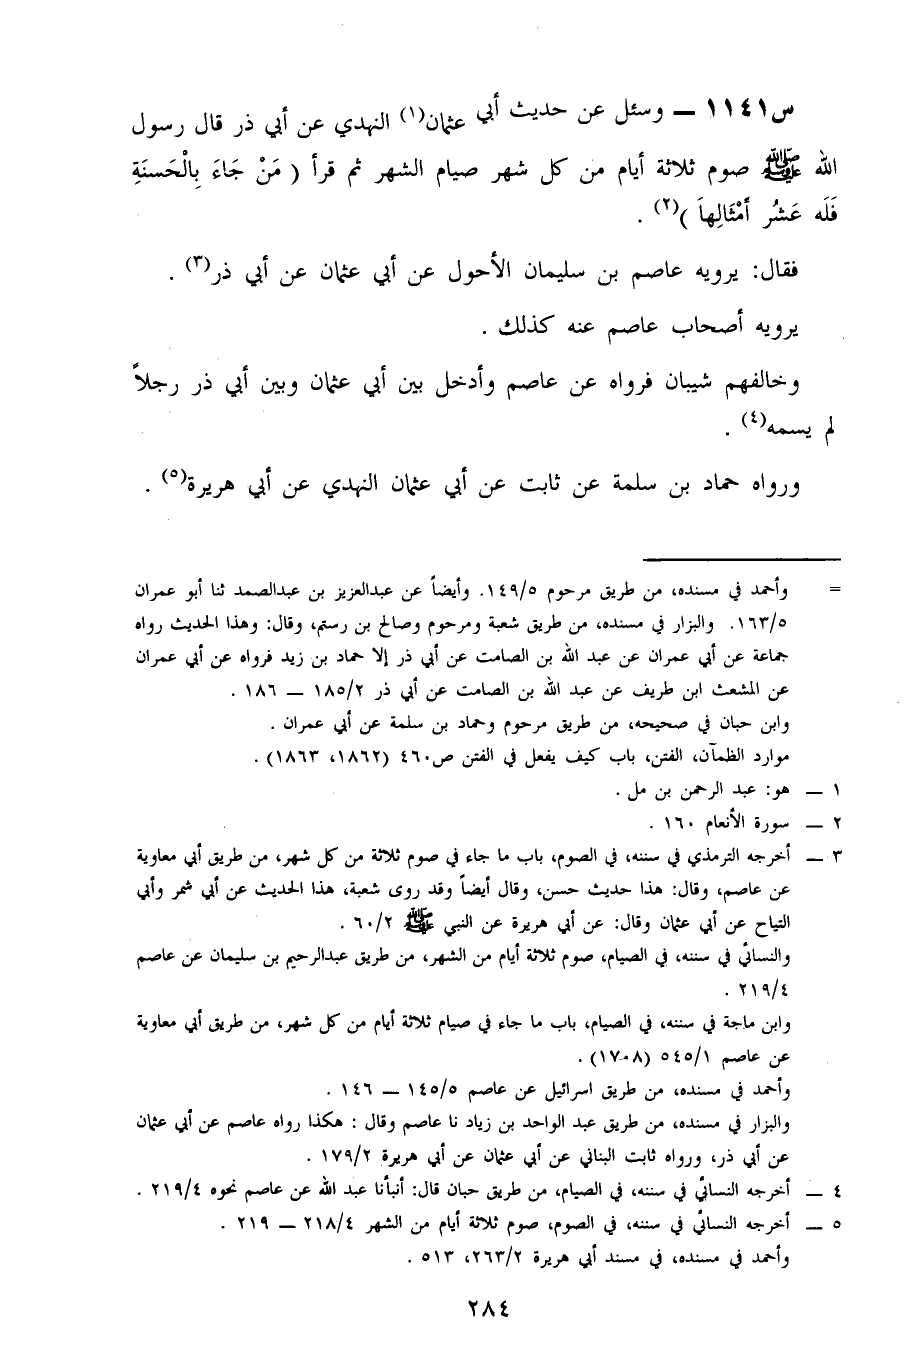 س١١٤١ ــ وسئل عن حديث أبي عثمان(١) النهدي عن أبي ذر قال رسول
الله ﷺ صوم ثلاثة أيام من كل شهر صيام الشهر ثم قرأ ( مَنْ جَاءَ بِالْحَسنَةِ
فَلَه عَشْرُ أمْثَالِهاَ )(٢) .
فقال: يرويه عاصم بن سليمان الأحول عن أبي عثمان عن أبي ذر(٣) .
يرويه أصحاب عاصم عنه كذلك .
وخالفهم شيبان فرواه عن عاصم وأدخل بين أبي عثمان وبين أبي ذر رجلاً
لم يسمه(٤) .
ورواه حماد بن سلمة عن ثابت عن أبي عثمان النهدي عن أبي هريرة(٥) .
= وأحمد في مسنده، من طريق مرحوم ١٤٩/٥. وأيضاً عن عبدالعزيز بن عبدالصمد ثنا أبو عمران
١٦٣/٥. والبزار في مسنده، من طريق شعبة ومرحوم وصالح بن رستم، وقال: وهذا الحديث رواه
جماعة عن أبي عمران عن عبد الله بن الصامت عن أبي ذر إلا حماد بن زيد فرواه عن أبي عمران
عن المشعث ابن طريف عن عبد الله بن الصامت عن أبي ذر ١٨٥/٢ ــ ١٨٦ .
وابن حبان في صحيحه، من طريق مرحوم وحماد بن سلمة عن أبي عمران .
موارد الظمآن، الفتن، باب كيف يفعل في الفتن ص٤٦٠ (١٨٦٢، ١٨٦٣) .
١ ــ هو: عبد الرحمن بن مل .
٢ ــ سورة الأنعام ١٦٠ .
٣ ــ أخرجه الترمذي في سننه، في الصوم، باب ما جاء في صوم ثلاثة من كل شهر، من طريق أبي معاوية
عن عاصم، وقال: هذا حديث حسن، وقال أيضاً وقد روى شعبة، هذا الحديث عن أبي شمر وأبي
التياح عن أبي عثمان وقال: عن أبي هريرة عن النبي ﷺ ٦٠/٢ .
والنسائي في سننه، في الصيام، صوم ثلاثة أيام من الشهر، من طريق عبدالرحيم بن سليمان عن عاصم
٢١٩/٤ .
وابن ماجة في سننه، في الصيام، باب ما جاء في صيام ثلاثة أيام من كل شهر، من طريق أبي معاوية
عن عاصم ٥٤٥/١ (١٧٠٨) .
وأحمد في مسنده، من طريق اسرائيل عن عاصم ١٤٥/٥ ــ ١٤٦ .
والبزار في مسنده، من طريق عبد الواحد بن زياد نا عاصم وقال : هكذا رواه عاصم عن أبي عثمان
عن أبي ذر، ورواه ثابت البناني عن أبي عثمان عن أبي هريرة ١٧٩/٢ .
٤ ــ أخرجه النسائي في سننه، في الصيام، من طريق حبان قال: أنبأنا عبد الله عن عاصم نحوه ٢١٩/٤ .
٥ ــ أخرجه النسائي في سننه، في الصوم، صوم ثلاثة أيام من الشهر ٢١٨/٤ ــ ٢١٩ .
وأحمد في مسنده، في مسند أبي هريرة ٢٦٣/٢، ٥١٣ .
٢٨٤